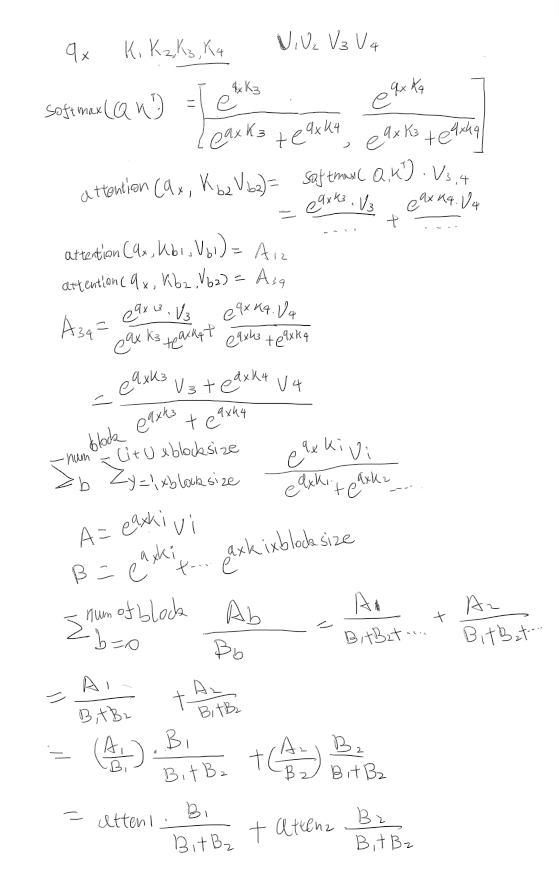 qx K1 K2 K3, K4 V1 V2 V3 V4
softmax(QK^T) = [ e^{qxK3} / (e^{qxK3} + e^{qxK4}), e^{qxK4} / (e^{qxK3} + e^{qxK4}) ]
attention (qx, Kb2 Vb2) = softmax(Q,K^T) · V3,4
= e^{qxK3}·V3 / .... + e^{qxK4}·V4 / .....
attention (qx, Kb1, Vb1) = A12
attention (qx, Kb2, Vb2) = A34
A34 = e^{qxK3}·V3 / (e^{qxK3} + e^{qxK4}) + e^{qxK4}·V4 / (e^{qxK3} + e^{qxK4})
= (e^{qxK3} V3 + e^{qxK4} V4) / (e^{qxK3} + e^{qxK4})
Σ_b^{num block} Σ_{y=i×blocksize}^{(i+1)×blocksize} e^{qxKi} Vi / (e^{qxK1} + e^{qxK2} ....)
A = e^{qxKi} Vi
B = e^{qxKi} + .... e^{qxKi×blocksize}
Σ_{b=0}^{num of block} Ab / Bb = A1 / (B1+B2+....) + A2 / (B1+B2+...)
= A1 / (B1+B2) + A2 / (B1+B2)
= (A1/B1) · B1 / (B1+B2) + (A2/B2) B2 / (B1+B2)
= atten1 · B1 / (B1+B2) + atten2 B2 / (B1+B2)